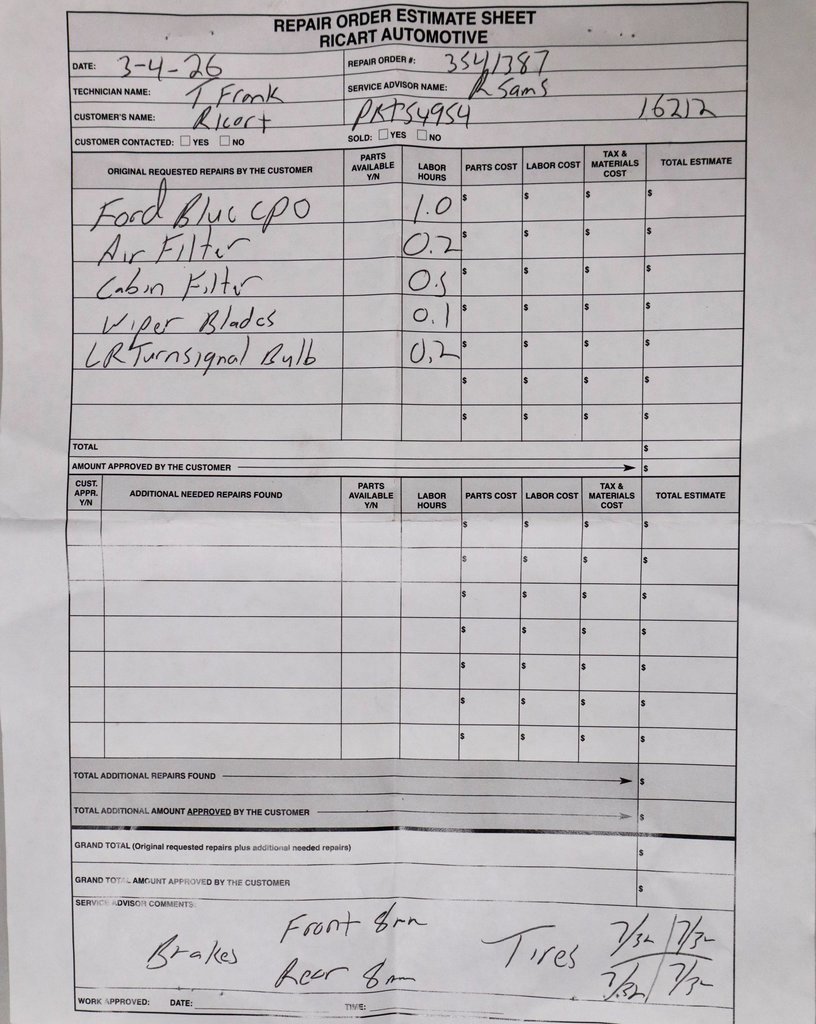 REPAIR ORDER ESTIMATE SHEET
RICART AUTOMOTIVE
DATE: 3-4-26 REPAIR ORDER #: 3541387
TECHNICIAN NAME: T Frank SERVICE ADVISOR NAME: R Sams
CUSTOMER'S NAME: Ricart PRT54954 16212
CUSTOMER CONTACTED: YES NO SOLD: YES NO
ORIGINAL REQUESTED REPAIRS BY THE CUSTOMER PARTS AVAILABLE Y/N LABOR HOURS PARTS COST LABOR COST TAX & MATERIALS COST TOTAL ESTIMATE
Ford Blue CPO 1.0 $ $ $ $
Air Filter 0.2 $ $ $ $
Cabin Filter 0.5 $ $ $ $
Wiper Blades 0.1 $ $ $ $
LR Turnsignal Bulb 0.2 $ $ $ $
$ $ $ $
$ $ $ $
TOTAL $
AMOUNT APPROVED BY THE CUSTOMER $
CUST. APPR. Y/N ADDITIONAL NEEDED REPAIRS FOUND PARTS AVAILABLE Y/N LABOR HOURS PARTS COST LABOR COST TAX & MATERIALS COST TOTAL ESTIMATE
$ $ $ $
$ $ $ $
$ $ $ $
$ $ $ $
$ $ $ $
$ $ $ $
$ $ $ $
TOTAL ADDITIONAL REPAIRS FOUND $
TOTAL ADDITIONAL AMOUNT APPROVED BY THE CUSTOMER $
GRAND TOTAL (Original requested repairs plus additional needed repairs) $
GRAND TOTAL AMOUNT APPROVED BY THE CUSTOMER $
SERVICE ADVISOR COMMENTS:
Front 8mm 7/32 7/32
Brakes Tires
Rear 8mm 7/32 7/32
WORK APPROVED: DATE: TIME: